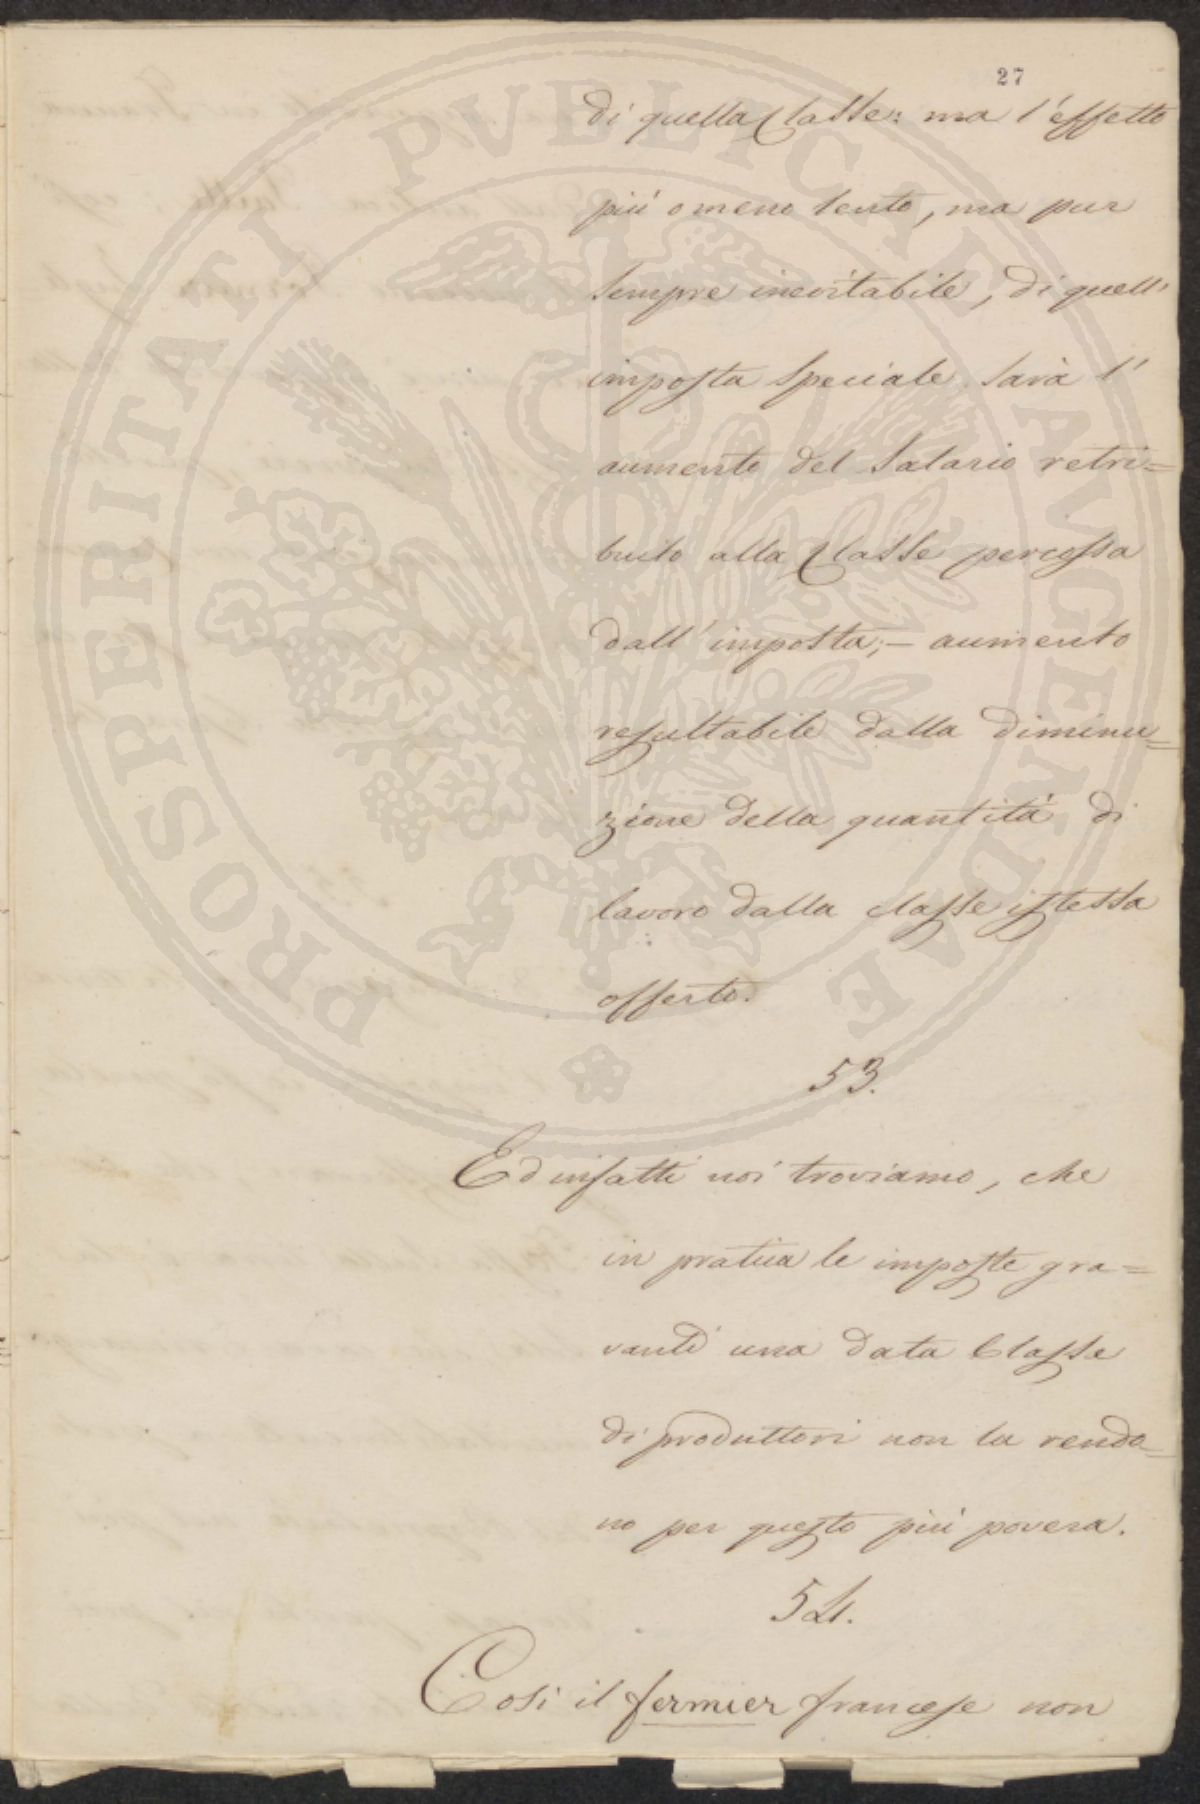 27
di quella Classe: ma l'effetto
più o meno lento, ma pur
sempre inevitabile, di quell'
imposta speciale sarà l'
aumento del Salario retri=
buito alla Classe percossa
dall'imposta; — aumento
resultabile dalla diminu=
zione della quantità di
lavoro dalla classe istessa
offerto.
53.
Ed infatti noi troviamo, che
in pratica le imposte gra=
vanti una data Classe
di produttori non la rendo=
no per questo più povera.
54.
Così il fermier francese non
PROSPERITATI PVBLICAE AVGENDAE